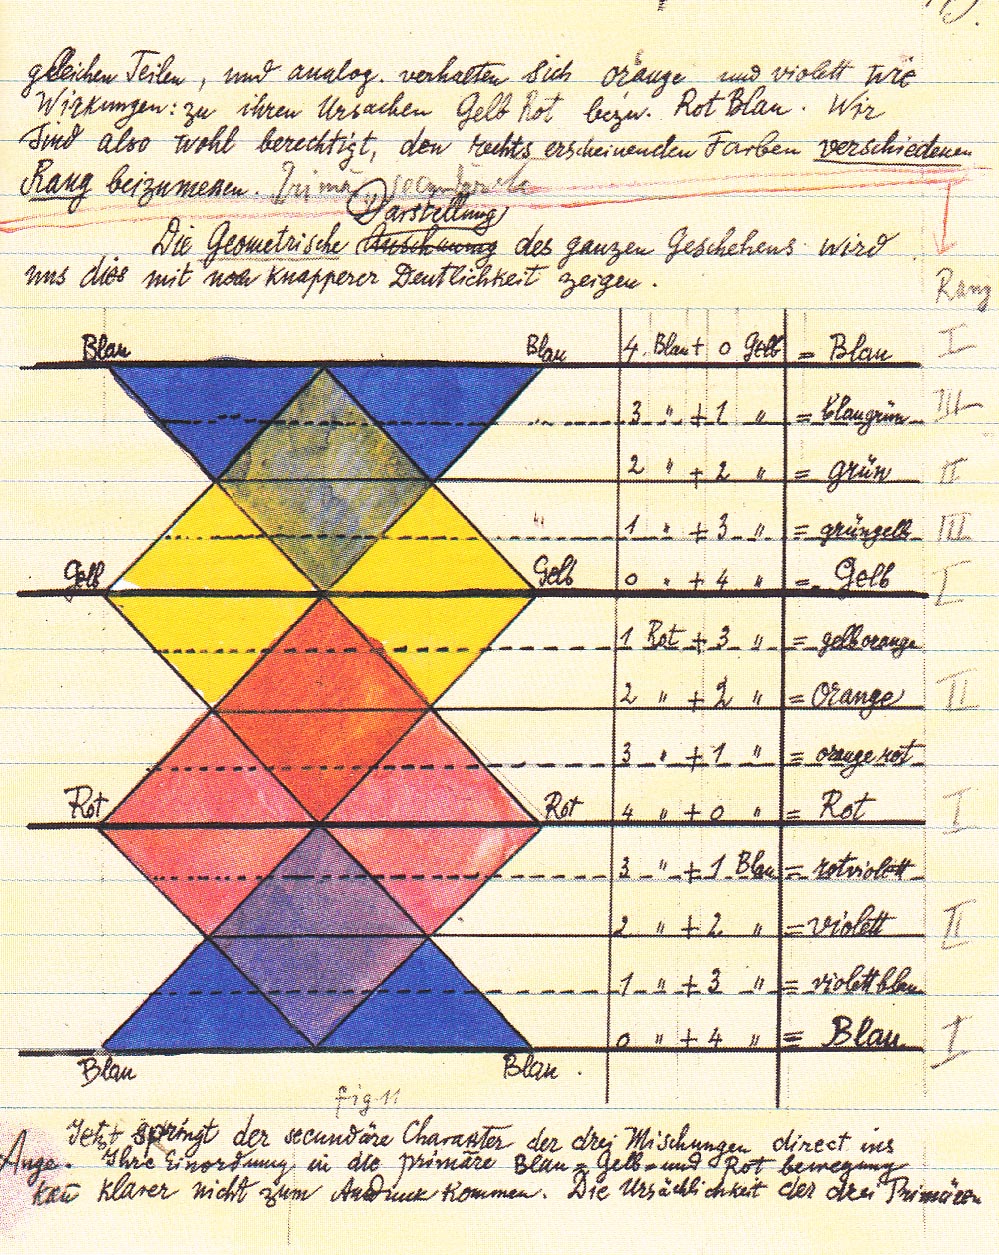 gleichen Teilen, und analog. verhalten sich orange und violett wie
Wirkungen: zu ihren Ursachen Gelb Rot bezw. Rot Blau. Wir
sind also wohl berechtigt, den rechts erscheinenden Farben verschiedenen
Rang beizumessen. Primär secundär
Darstellung
Die Geometrische Anschauung des ganzen Geschehens wird
uns dies mit noch knapperer Deutlichkeit zeigen.
Rang
Blau Blau 4 Blau + 0 Gelb = Blau I
3 " + 1 " = blaugrün III
2 " + 2 " = grün II
1 " + 3 " = grüngelb III
Gelb Gelb 0 " + 4 " = Gelb I
1 Rot + 3 " = gelborange
2 " + 2 " = Orange II
3 " + 1 " = orangerot
Rot Rot 4 " + 0 " = Rot I
3 " + 1 Blau = rotviolett
2 " + 2 " = violett II
1 " + 3 " = violettblau
0 " + 4 " = Blau I
Blau Blau
fig 11
Jetzt springt der secundäre Charakter der drei Mischungen direct ins
Auge. Ihre Einordnung in die primäre Blau= Gelb= und Rot bewegung
kañ klarer nicht zum Ausdruck kommen. Die Ursächlichkeit der drei Primären